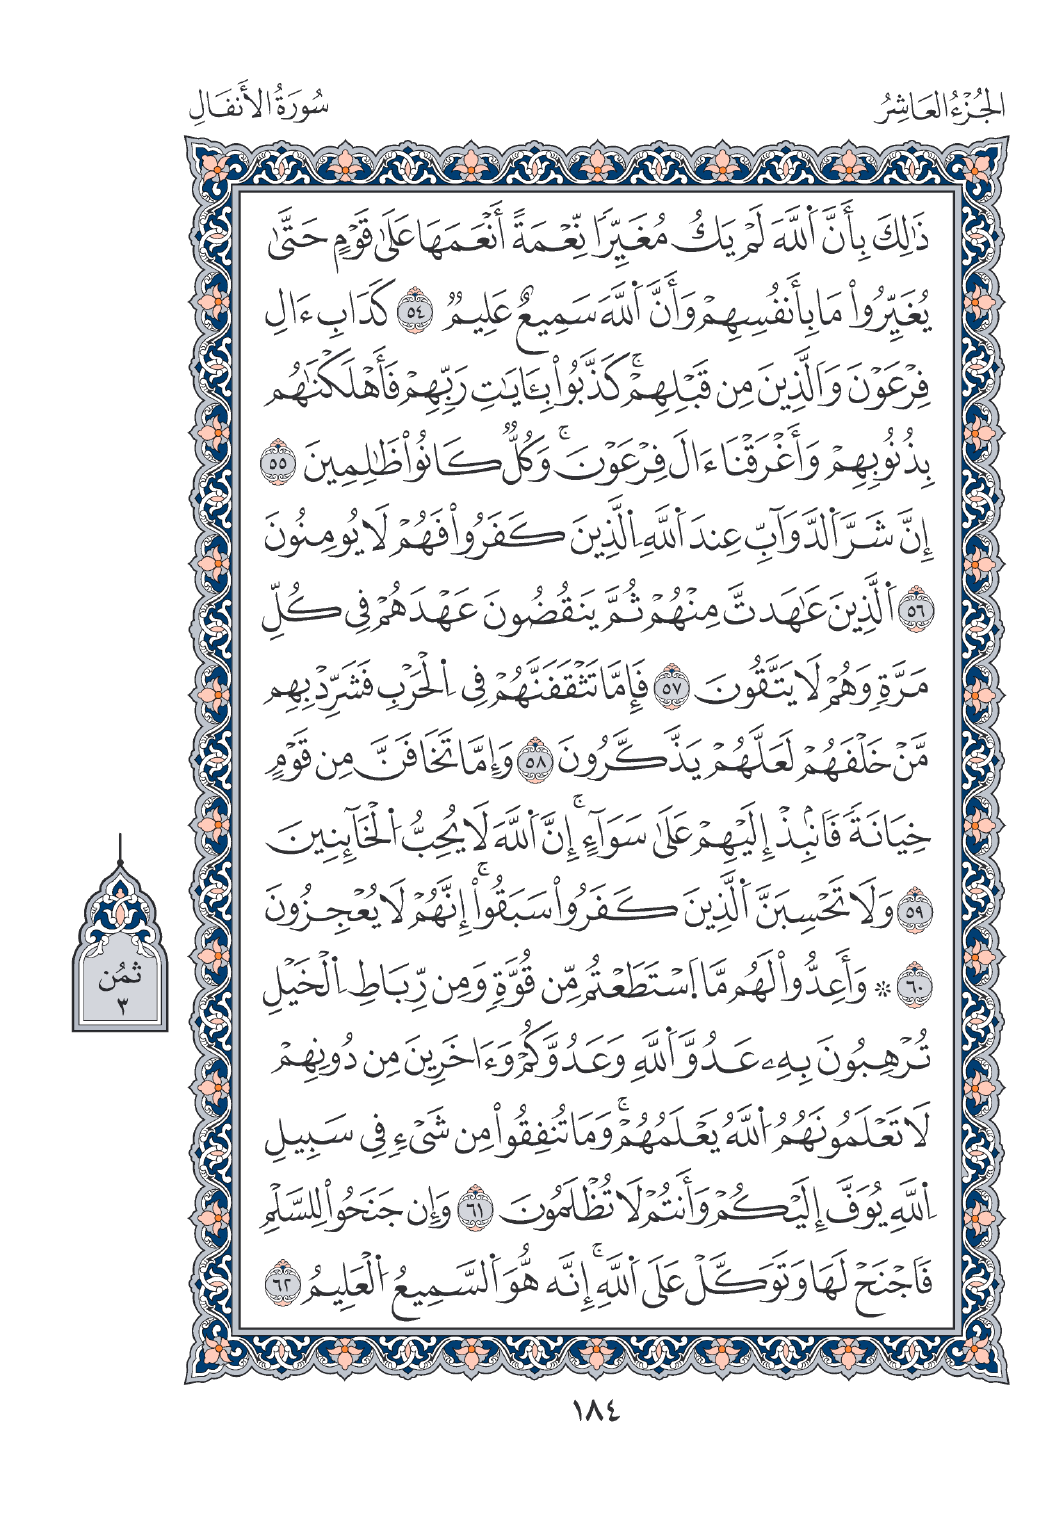 الجُزْءُ العَاشِرُ
سُورَةُ الأَنفَالِ
ذَٰلِكَ بِأَنَّ اَ۬للَّهَ لَمْ يَكُ مُغَيِّراٗ نِّعْمَةً أَنْعَمَهَا عَلَىٰ قَوْمٍ حَتَّىٰ
يُغَيِّرُواْ مَا بِأَنفُسِهِمْ وَأَنَّ اَ۬للَّهَ سَمِيعٌ عَلِيمٞ ٥٤ كَدَابِ ءَالِ
فِرْعَوْنَ وَالَّذِينَ مِن قَبْلِهِمْۚ كَذَّبُواْ بِـَٔايَٰتِ رَبِّهِمْ فَأَهْلَكْنَٰهُم
بِذُنُوبِهِمْ وَأَغْرَقْنَا ءَالَ فِرْعَوْنَۚ وَكُلّٞ كَانُواْ ظَٰلِمِينَ ٥٥
إِنَّ شَرَّ اَ۬لدَّوَآبِّ عِندَ اَ۬للَّهِ اِ۬لَّذِينَ كَفَرُواْ فَهُمْ لَا يُومِنُونَ
٥٦ اَ۬لَّذِينَ عَٰهَدتَّ مِنْهُمْ ثُمَّ يَنقُضُونَ عَهْدَهُمْ فِي كُلِّ
مَرَّةٖ وَهُمْ لَا يَتَّقُونَ ٥٧ فَإِمَّا تَثْقَفَنَّهُمْ فِي اِ۬لْحَرْبِ فَشَرِّدْ بِهِم
مَّنْ خَلْفَهُمْ لَعَلَّهُمْ يَذَّكَّرُونَ ٥٨ وَإِمَّا تَخَافَنَّ مِن قَوْمٍ
خِيَانَةٗ فَانۢبِذْ إِلَيْهِمْ عَلَىٰ سَوَآءٍۚ إِنَّ اَ۬للَّهَ لَا يُحِبُّ اُ۬لْخَآئِنِينَ
٥٩ وَلَا تَحْسِبَنَّ اَ۬لَّذِينَ كَفَرُواْ سَبَقُواْۚ إِنَّهُمْ لَا يُعْجِزُونَ
٦٠ ۞ وَأَعِدُّواْ لَهُم مَّا اَ۪سْتَطَعْتُم مِّن قُوَّةٖ وَمِن رِّبَاطِ اِ۬لْخَيْلِ
تُرْهِبُونَ بِهِۦ عَدُوَّ اَ۬للَّهِ وَعَدُوَّكُمْ وَءَاخَرِينَ مِن دُونِهِمْ
لَا تَعْلَمُونَهُمُ اُ۬للَّهُ يَعْلَمُهُمْۚ وَمَا تُنفِقُواْ مِن شَيْءٖ فِي سَبِيلِ
اِ۬للَّهِ يُوَفَّ إِلَيْكُمْ وَأَنتُمْ لَا تُظْلَمُونَ ٦١ وَإِن جَنَحُواْ لِلسَّلْمِ
فَاجْنَحْ لَهَا وَتَوَكَّلْ عَلَى اَ۬للَّهِۚ إِنَّه هُّوَ اَ۬لسَّمِيعُ اُ۬لْعَلِيمُ ٦٢
ثُمُن
٣
١٨٤